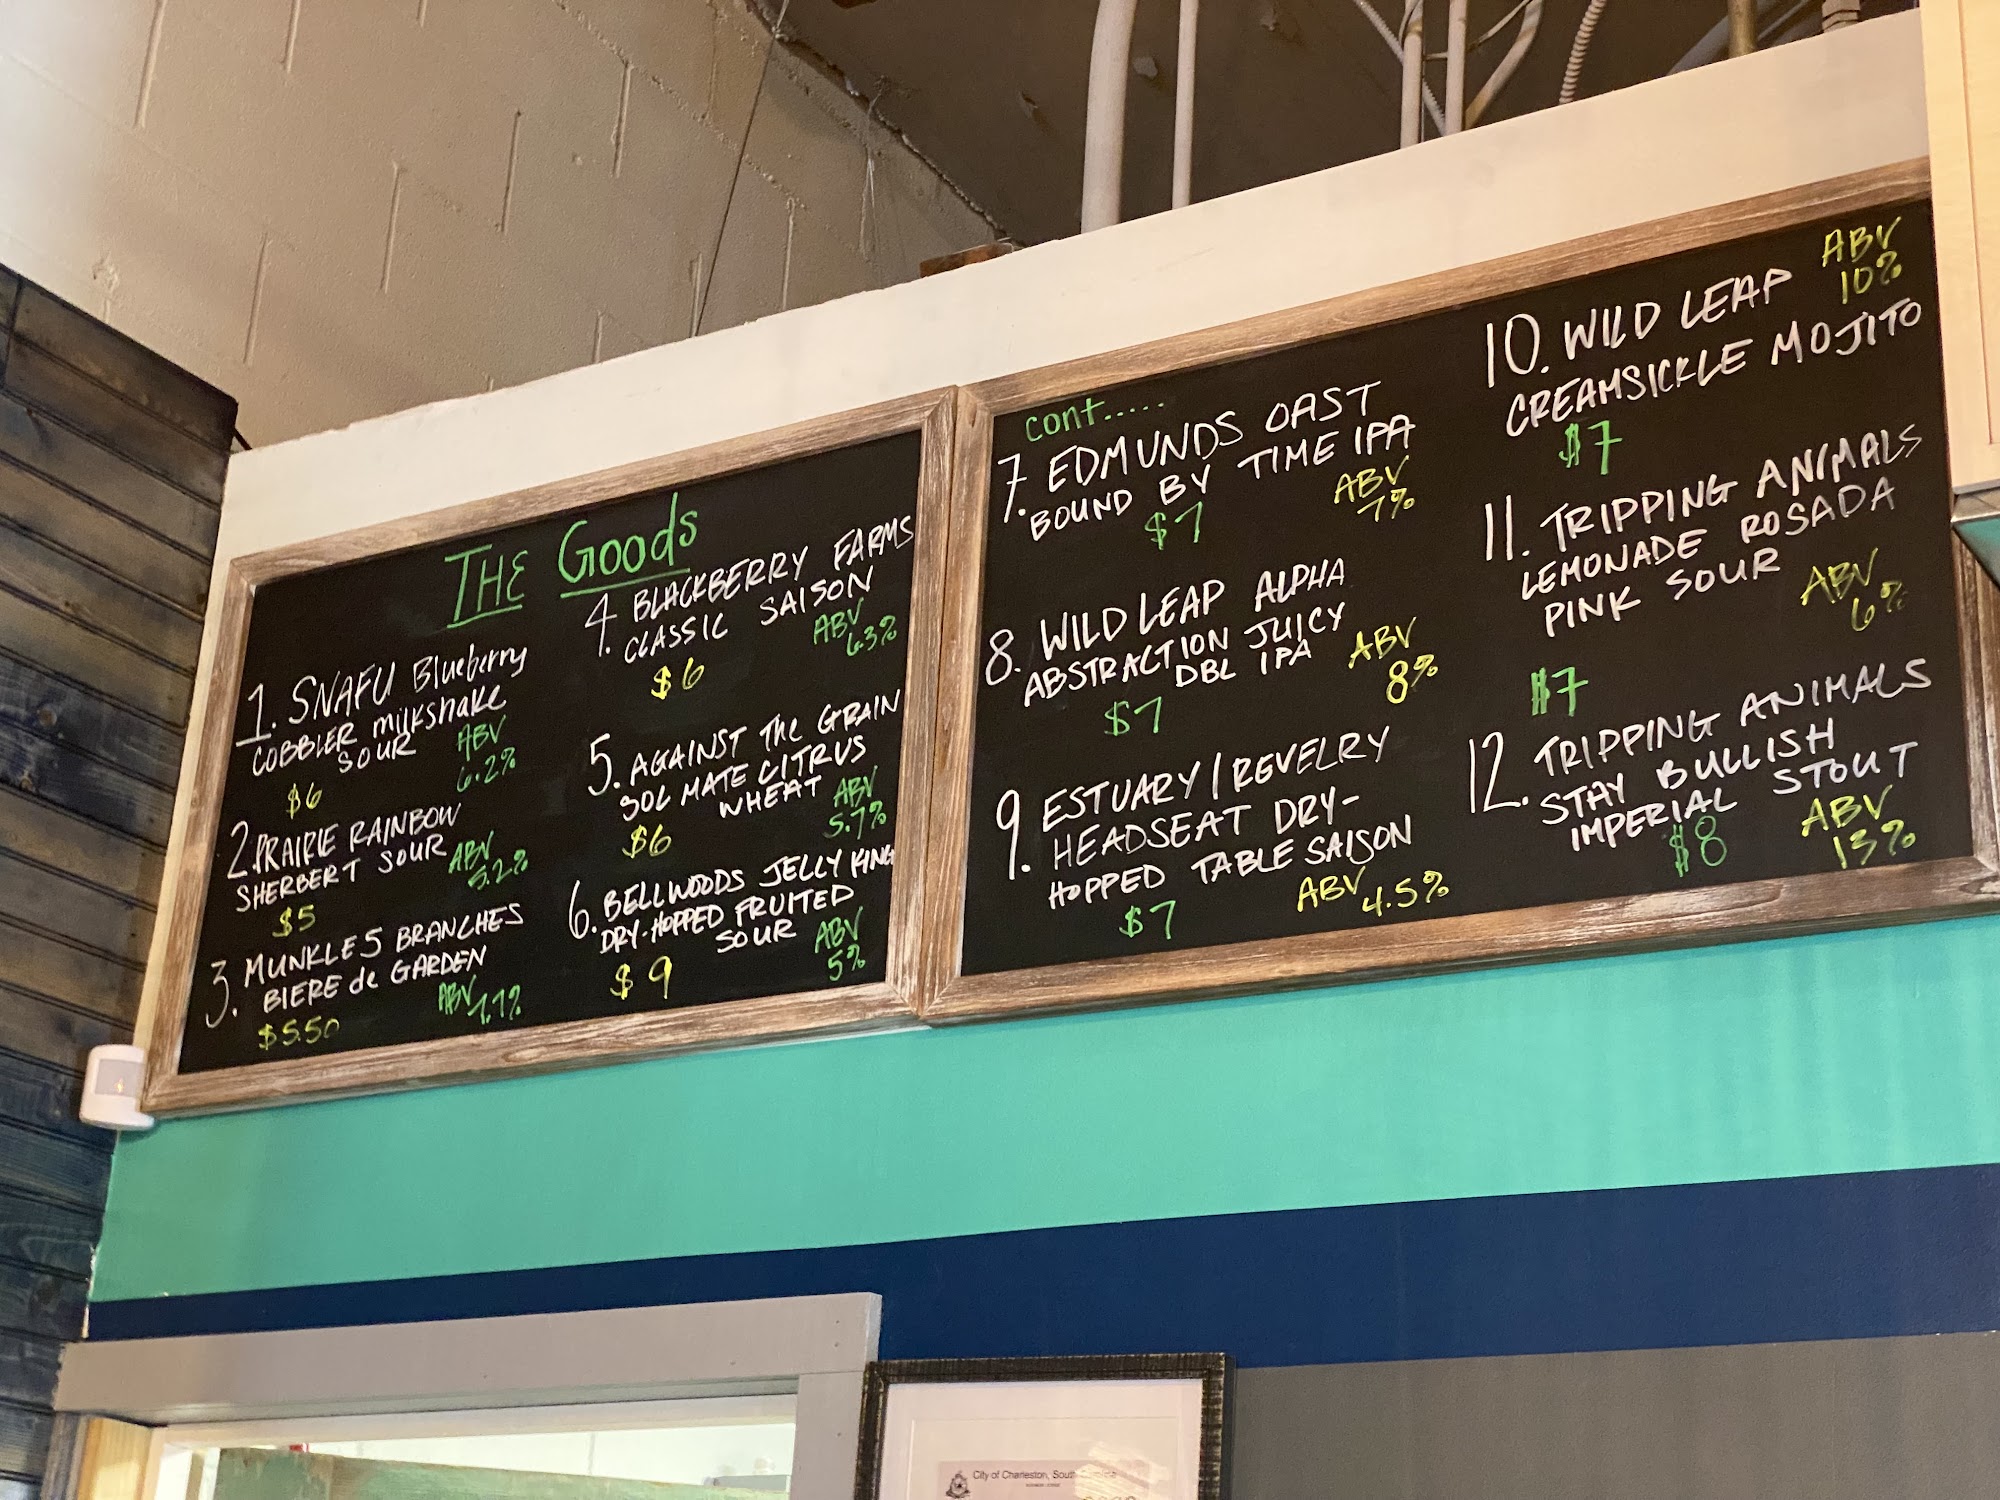 THE Goods
1. SNAFU Blueberry
COBBLER milkshake
SOUR ABV
$6 6.2%
2. PRAIRIE RAINBOW
SHERBERT SOUR ABV
$5 5.2%
3. MUNKLE 5 BRANCHES
BIERE de GARDEN
$5.50 ABV
4. BLACKBERRY FARMS
CLASSIC SAISON
$6 ABV
6.3%
5. AGAINST THE GRAIN
SOL MATE CITRUS
WHEAT ABV
$6 5.7%
6. BELLWOODS JELLY KING
DRY-HOPPED FRUITED
SOUR ABV
$9 5%
cont.....
7. EDMUNDS OAST
BOUND BY TIME IPA
$7 ABV
7%
8. WILD LEAP ALPHA
ABSTRACTION JUICY
DBL IPA ABV
$7 8%
9. ESTUARY/REVELRY
HEADSEAT DRY-
HOPPED TABLE SAISON
$7 ABV 4.5%
10. WILD LEAP ABV
10%
CREAMSICKLE MOJITO
$7
11. TRIPPING ANIMALS
LEMONADE ROSADA
PINK SOUR ABV
6%
$7
12. TRIPPING ANIMALS
STAY BULLISH
IMPERIAL STOUT
$8 ABV
13%
City of Charleston, South Carolina